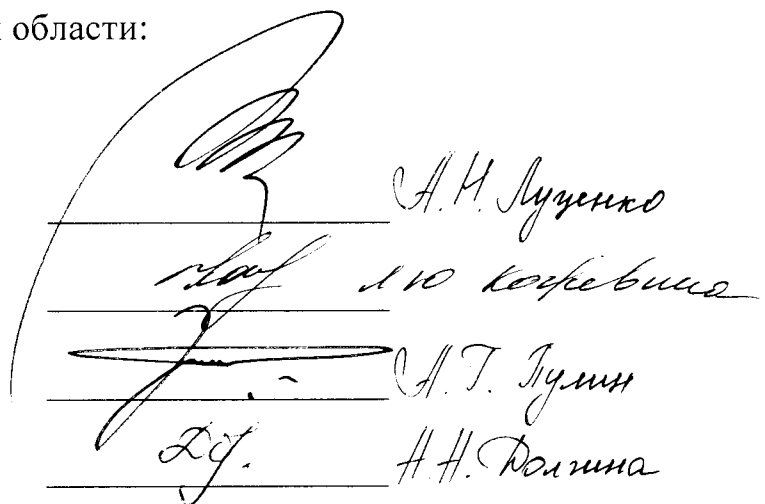 области:
А.Н. Луценко
Л Ю Кожевина
А.Г. Пулин
Н.Н. Долгина